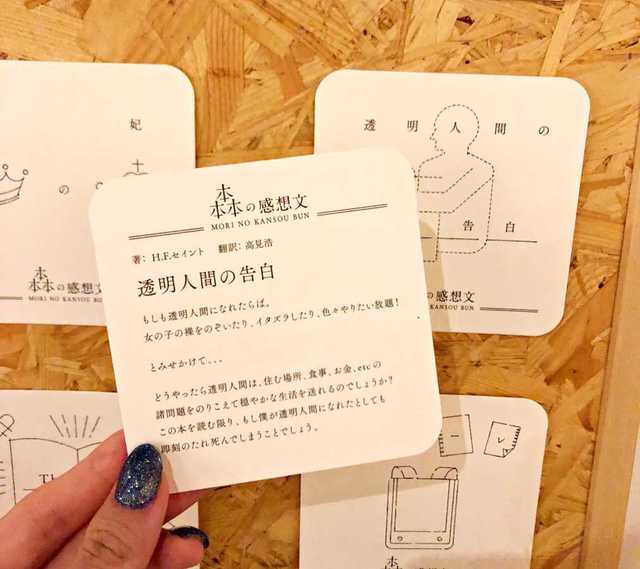 妃
の
森の感想文
MORI NO KANSOU BUN
透明人間の
告白
の感想文
MORI NO KANSOU BUN
森の感想文
MORI NO KANSOU BUN
著: H.F.セイント 翻訳: 高見浩
透明人間の告白
もしも透明人間になれたらば。
女の子の裸をのぞいたり、イタズラしたり、色々やりたい放題!
とみせかけて、、、
どうやったら透明人間は、住む場所、食事、お金、etcの
諸問題をのりこえて穏やかな生活を送れるのでしょうか?
この本を読む限り、もし僕が透明人間になれたとしても
即刻のたれ死んでしまうことでしょう。